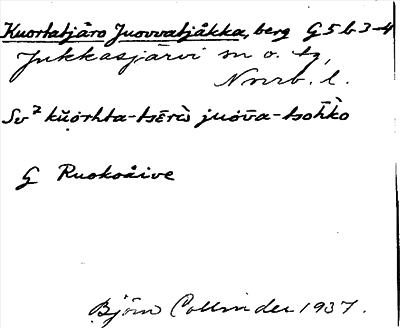 Kuortatjåro Juovvatjåkka, berg G5b3-4
Jukkasjärvi sn o. tg,
Norrb. l.
Sv⁷ kŭorhta-tsēràu juōvà-tsohko
G Ruokoåive
Björn Collinder 1937.